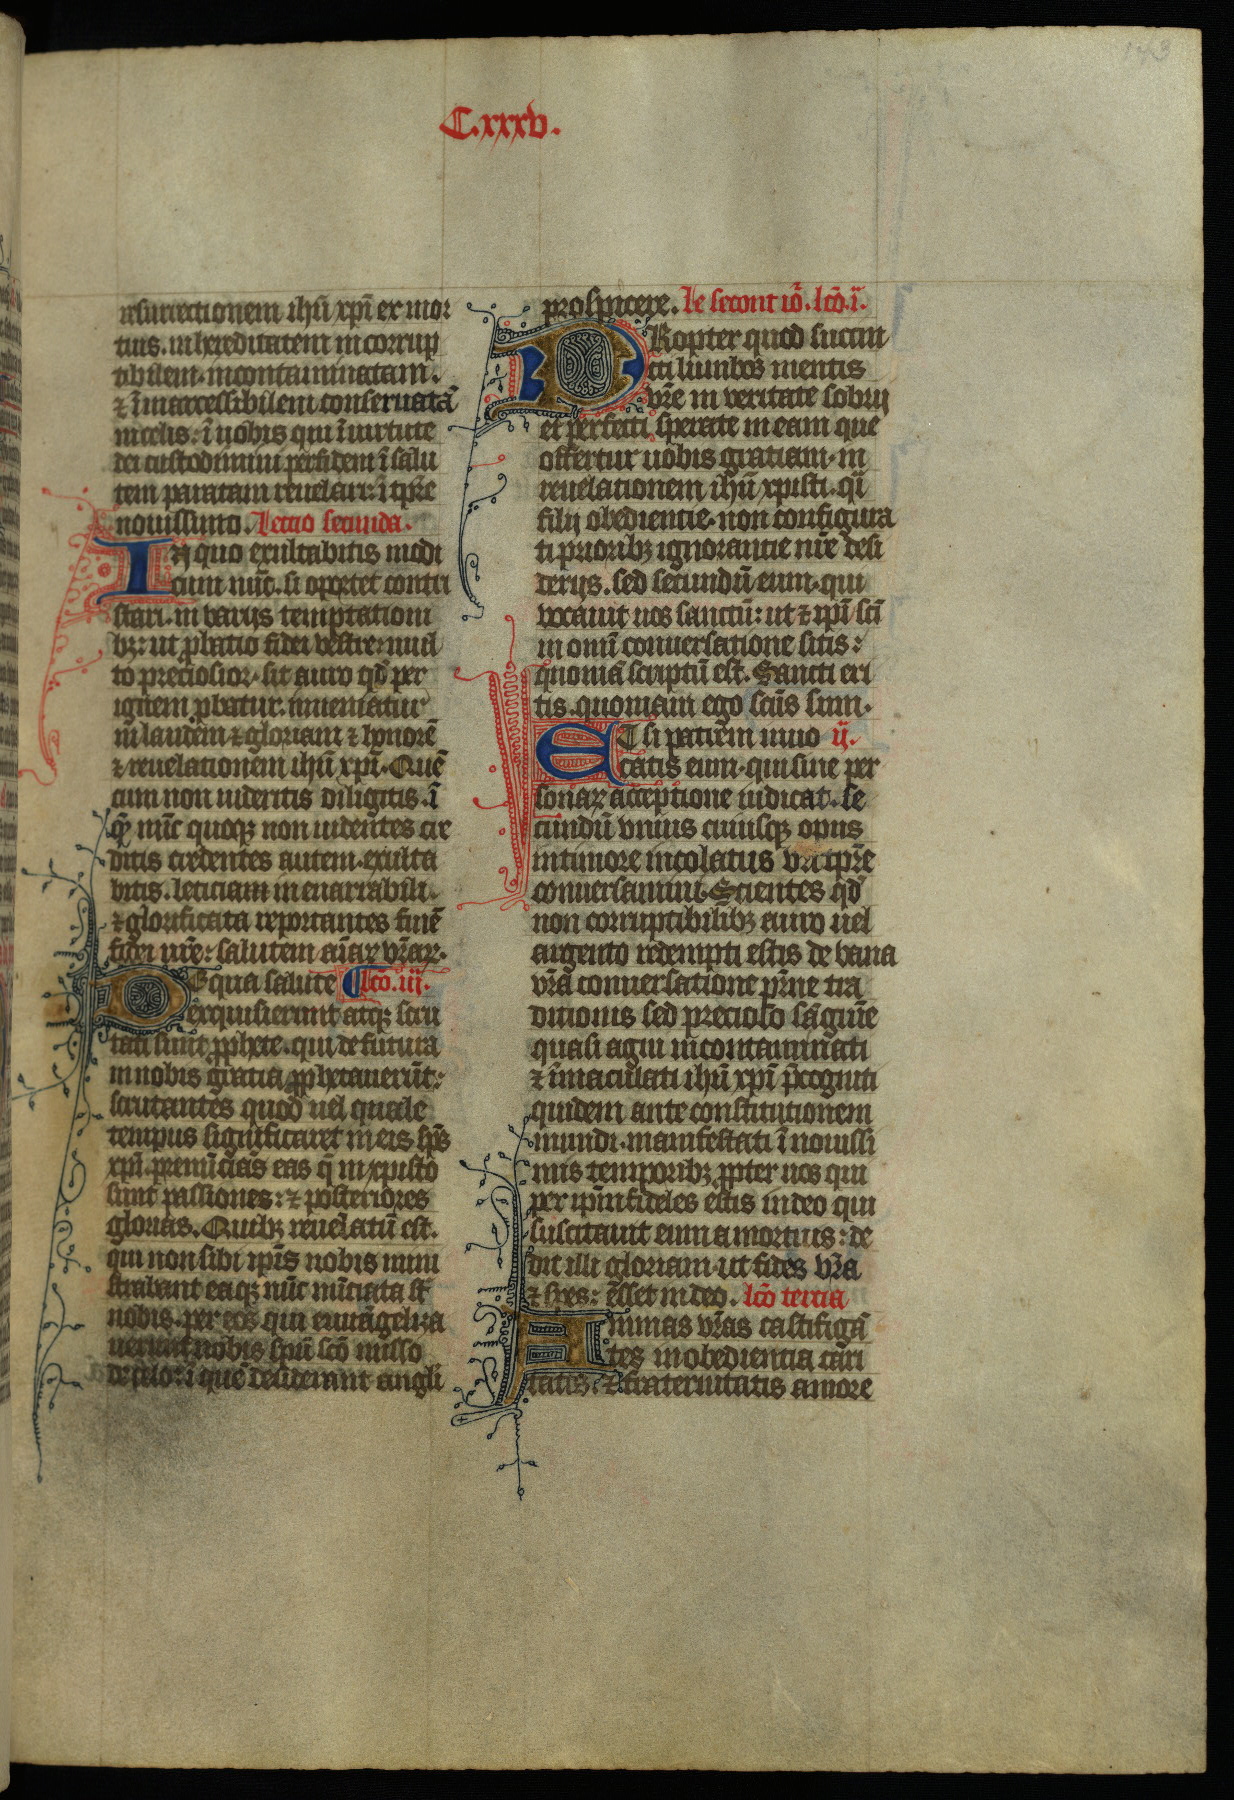 C.xxxv.
resurrectionem ihū xp̄i ex mor
tuis. in hereditatem in corrup
tibilem. incontaminatam.
⁊ īmarcessibilem conseruatā
in celis: ī uobis qui ī uirtute
dei custodimini per fidem ī salu
tem paratam reuelari: ī tp̄re
nouissimo. Lectio secunda.
In quo exultabitis modi
cum nūc. si oportet contri
stari. in varijs temptationi
bꝫ: ut ꝓbatio fidei vestre mul
to preciosior. sit auro qd̄ per
ignem ꝓbatur. inueniatur
in laudem ⁊ gloriam ⁊ honorē
⁊ reuelationem ihū xp̄i. Quē
cum non uideritis diligitis. ī
quē nūc quoqꝫ non uidentes cre
ditis credentes autem. exulta
bitis. leticiam inenarrabili.
⁊ glorificata reportantes finē
fidei vr̄e: salutem aīaꝝ vr̄aꝝ.
De qua salute lcō. iij.
exquisierunt atqꝫ scru
tati sunt ꝓphete. qui de futura
in nobis gratia ꝓphetauerūt:
scrutantes quod uel quale
tempus significaret in eis sp̄s
xp̄i. prenūcians eas q̄ in xpisto
sunt passiones: ⁊ posteriores
glorias. Quibꝫ reuelatū est.
qui non sibi ip̄is nobis mini
strabant ea qꝫ nūc nūciata st̄
nobis. per eos qui euuāgeliza
uerunt nobis spū scō misso
de celo: ī quē desiderant angli
prospicere. Le secont iō. lcō. i.
PRopter quod succin
cti lumbos mentis
vr̄e in veritate sobrij
et perfecti sperate in eam que
offertur uobis gratiam. in
reuelationem ihū xpisti. qī
filij obedientie. non configura
ti prioribꝫ ignorantie nr̄e desi
derijs. sed secundū eum. qui
vocauit uos sanctū: ut ⁊ ip̄i scī
in omī conuersatione sitis:
quoniā scriptū est. Sancti eri
tis. quoniam ego scūs sum.
ET si patrem inuo ij.
catis eum. qui sine per
sonaꝝ acceptione iudicat. se
cundū vnius cuiusqꝫ opus
in timore incolatus vr̄i tp̄re
conuersamini. Scientes qd̄
non corruptibilibꝫ auro uel
argento redempti estis de vana
vr̄a conuersatione pr̄ne tra
ditionis sed precioso sāguīe
quasi agni incontaminati
⁊ īmaculati ihū xp̄i p̄cogniti
quidem ante constitutionem
mundi. manifestati ī nouissi
mis temporibꝫ ꝓpter uos qui
per ip̄m fideles estis in deo qui
suscitauit eum a mortuis: de
dit illi gloriam. ut fides vr̄a
⁊ spes: esset in deo. lcō tercia
Animas vr̄as castifigā
tes in obedientia cāri
tatis: ⁊ fraternitatis amore